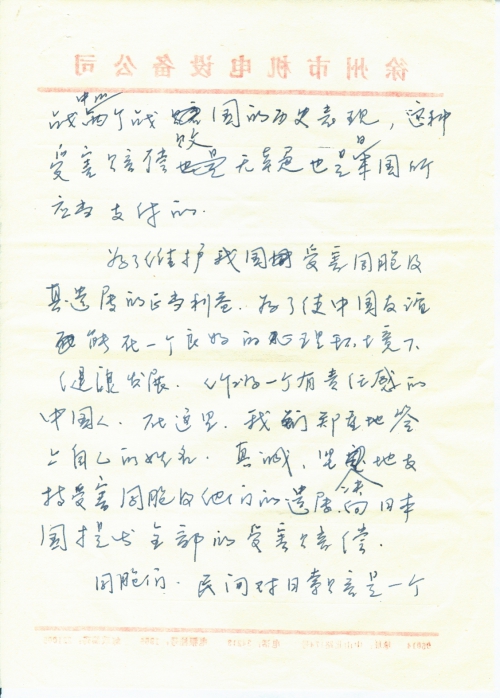 徐州市机电设备公司
战中两个战败国的历史表现，这种
受害赔偿无疑也是日本国所
应当支付的．
为了维护我国受害同胞及
其遗属的正当利益．为了使中国友谊
能在一个良好的心理环境下
健康发展．作为一个有责任感的
中国人．在这里．我郑重地签
上自己的姓名．真诚、坚决地支
持受害同胞及他们的遗属向日本
国提出全部的受害赔偿．
同胞们．民间对日索赔是一个